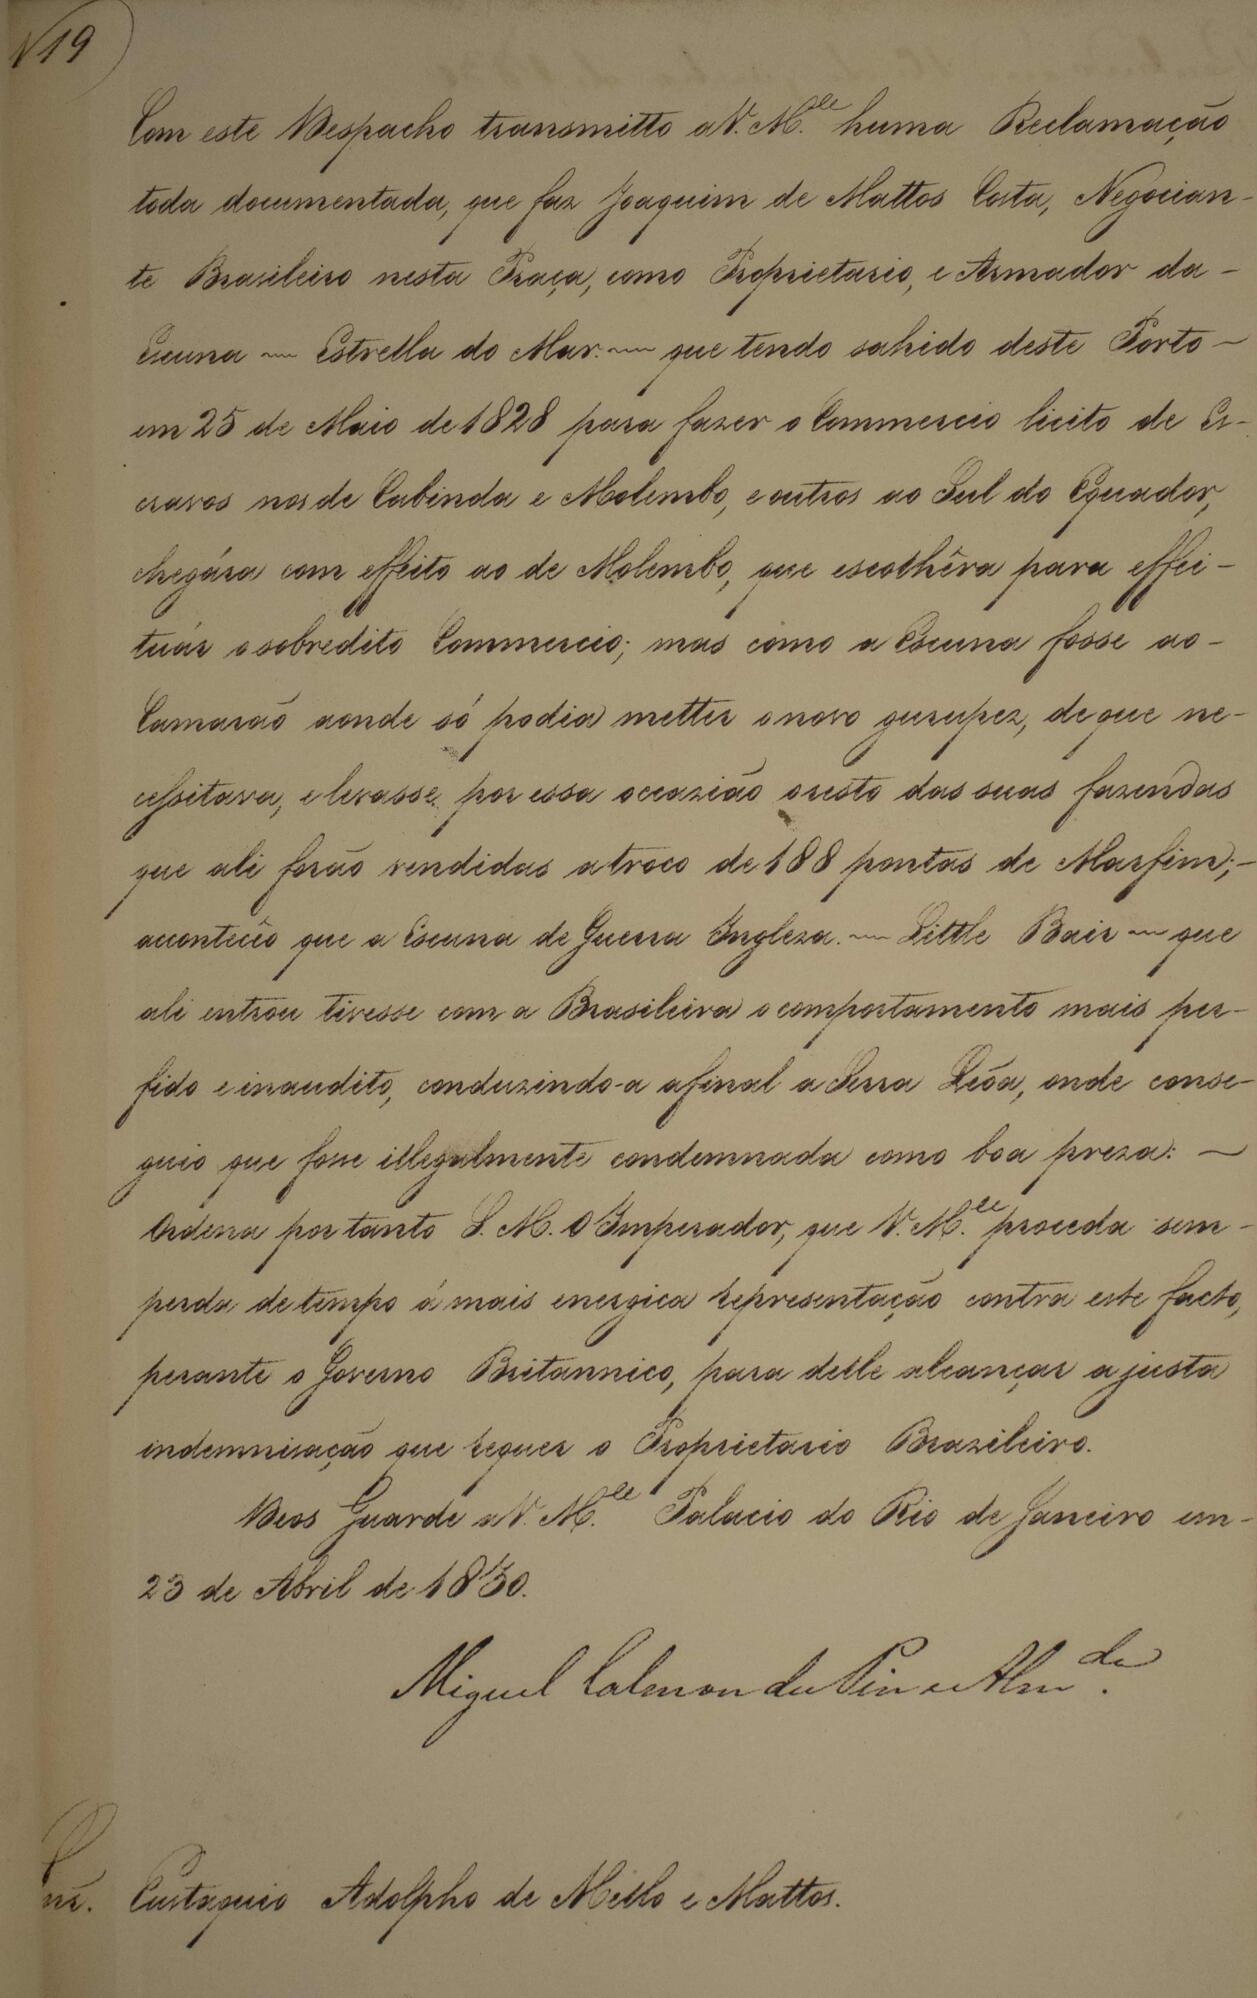 N 19
Com este Despacho transmitto a V. M.ce huma Reclamação
toda documentada, que faz Joaquim de Mattos Costa, Negocian-
te Brasileiro nesta Praça, como Proprietario, e Armador da -
Escuna — Estrella do Mar. — que tendo sahido deste Porto -
em 25 de Maio de 1828 para fazer o Commercio licito de Es-
cravos nos de Cabinda e Molembo, e outros ao Sul do Equador,
chegára com effeito ao de Molembo, que escolhêra para effei-
tuár o sobredito Commercio; mas como a Escuna fosse ao -
Camarão aonde só podia metter o novo gurupez, de que ne-
cessitava, e levasse por essa occazião o resto das suas fazendas
que ali forão vendidas a troco de 188 pontas de Marfim; -
aconteceo que a Escuna de Guerra Ingleza. — Little Bair — que
ali entrou tivesse com a Brasileira o comportamento mais per-
fido e inaudito, conduzindo-a afinal a Serra Leôa, onde conse-
guio que fosse illegalmente condemnada como boa preza: -
Ordena por tanto S. M. O Imperador, que V. M.ce proceda sem -
perda de tempo á mais energica representação contra este facto,
perante o Governo Britannico, para delle alcançar a justa
indemnisação que requer o Proprietario Brazileiro.
Deos Guarde a V. M.ce Palacio do Rio de Janeiro em -
23 de Abril de 1830.
Miguel Calmon du Pin e Alm.da
Snr. Eustaquio Adolpho de Mello e Mattos.